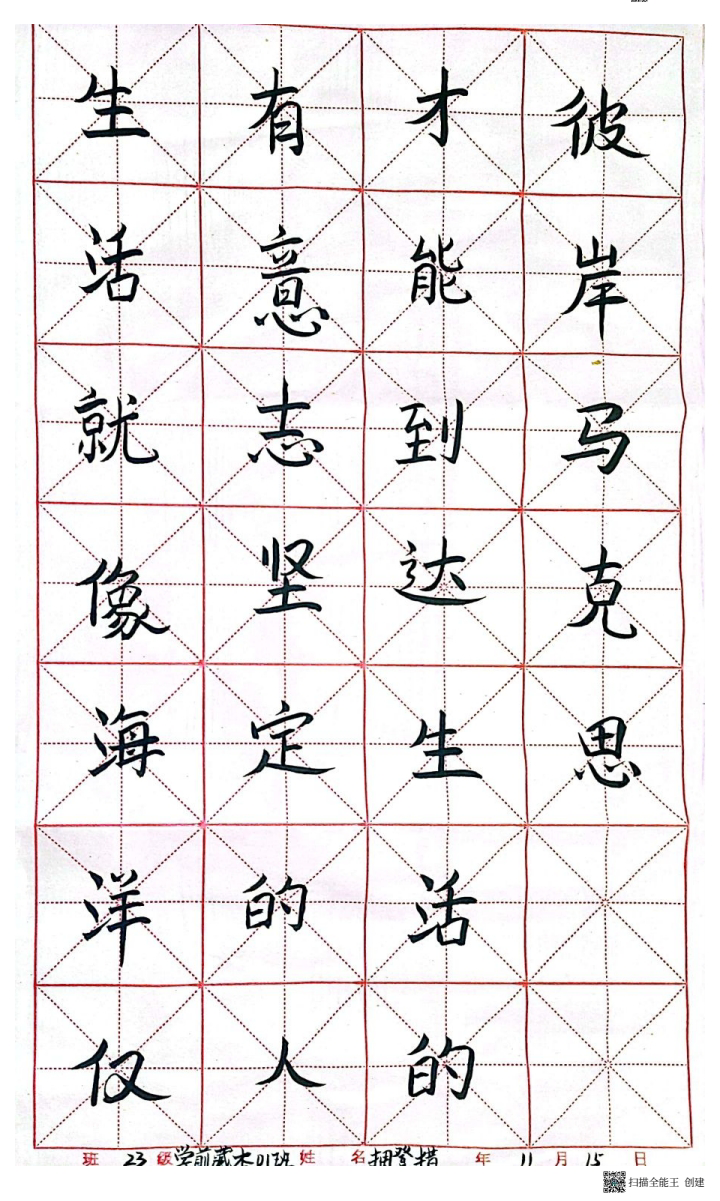 生活就像海洋仅
有意志坚定的人
才能到达生活的
彼岸马克思
班 23 级学前藏本01班 姓 名 拥登措 年 11 月 15 日
扫描全能王 创建